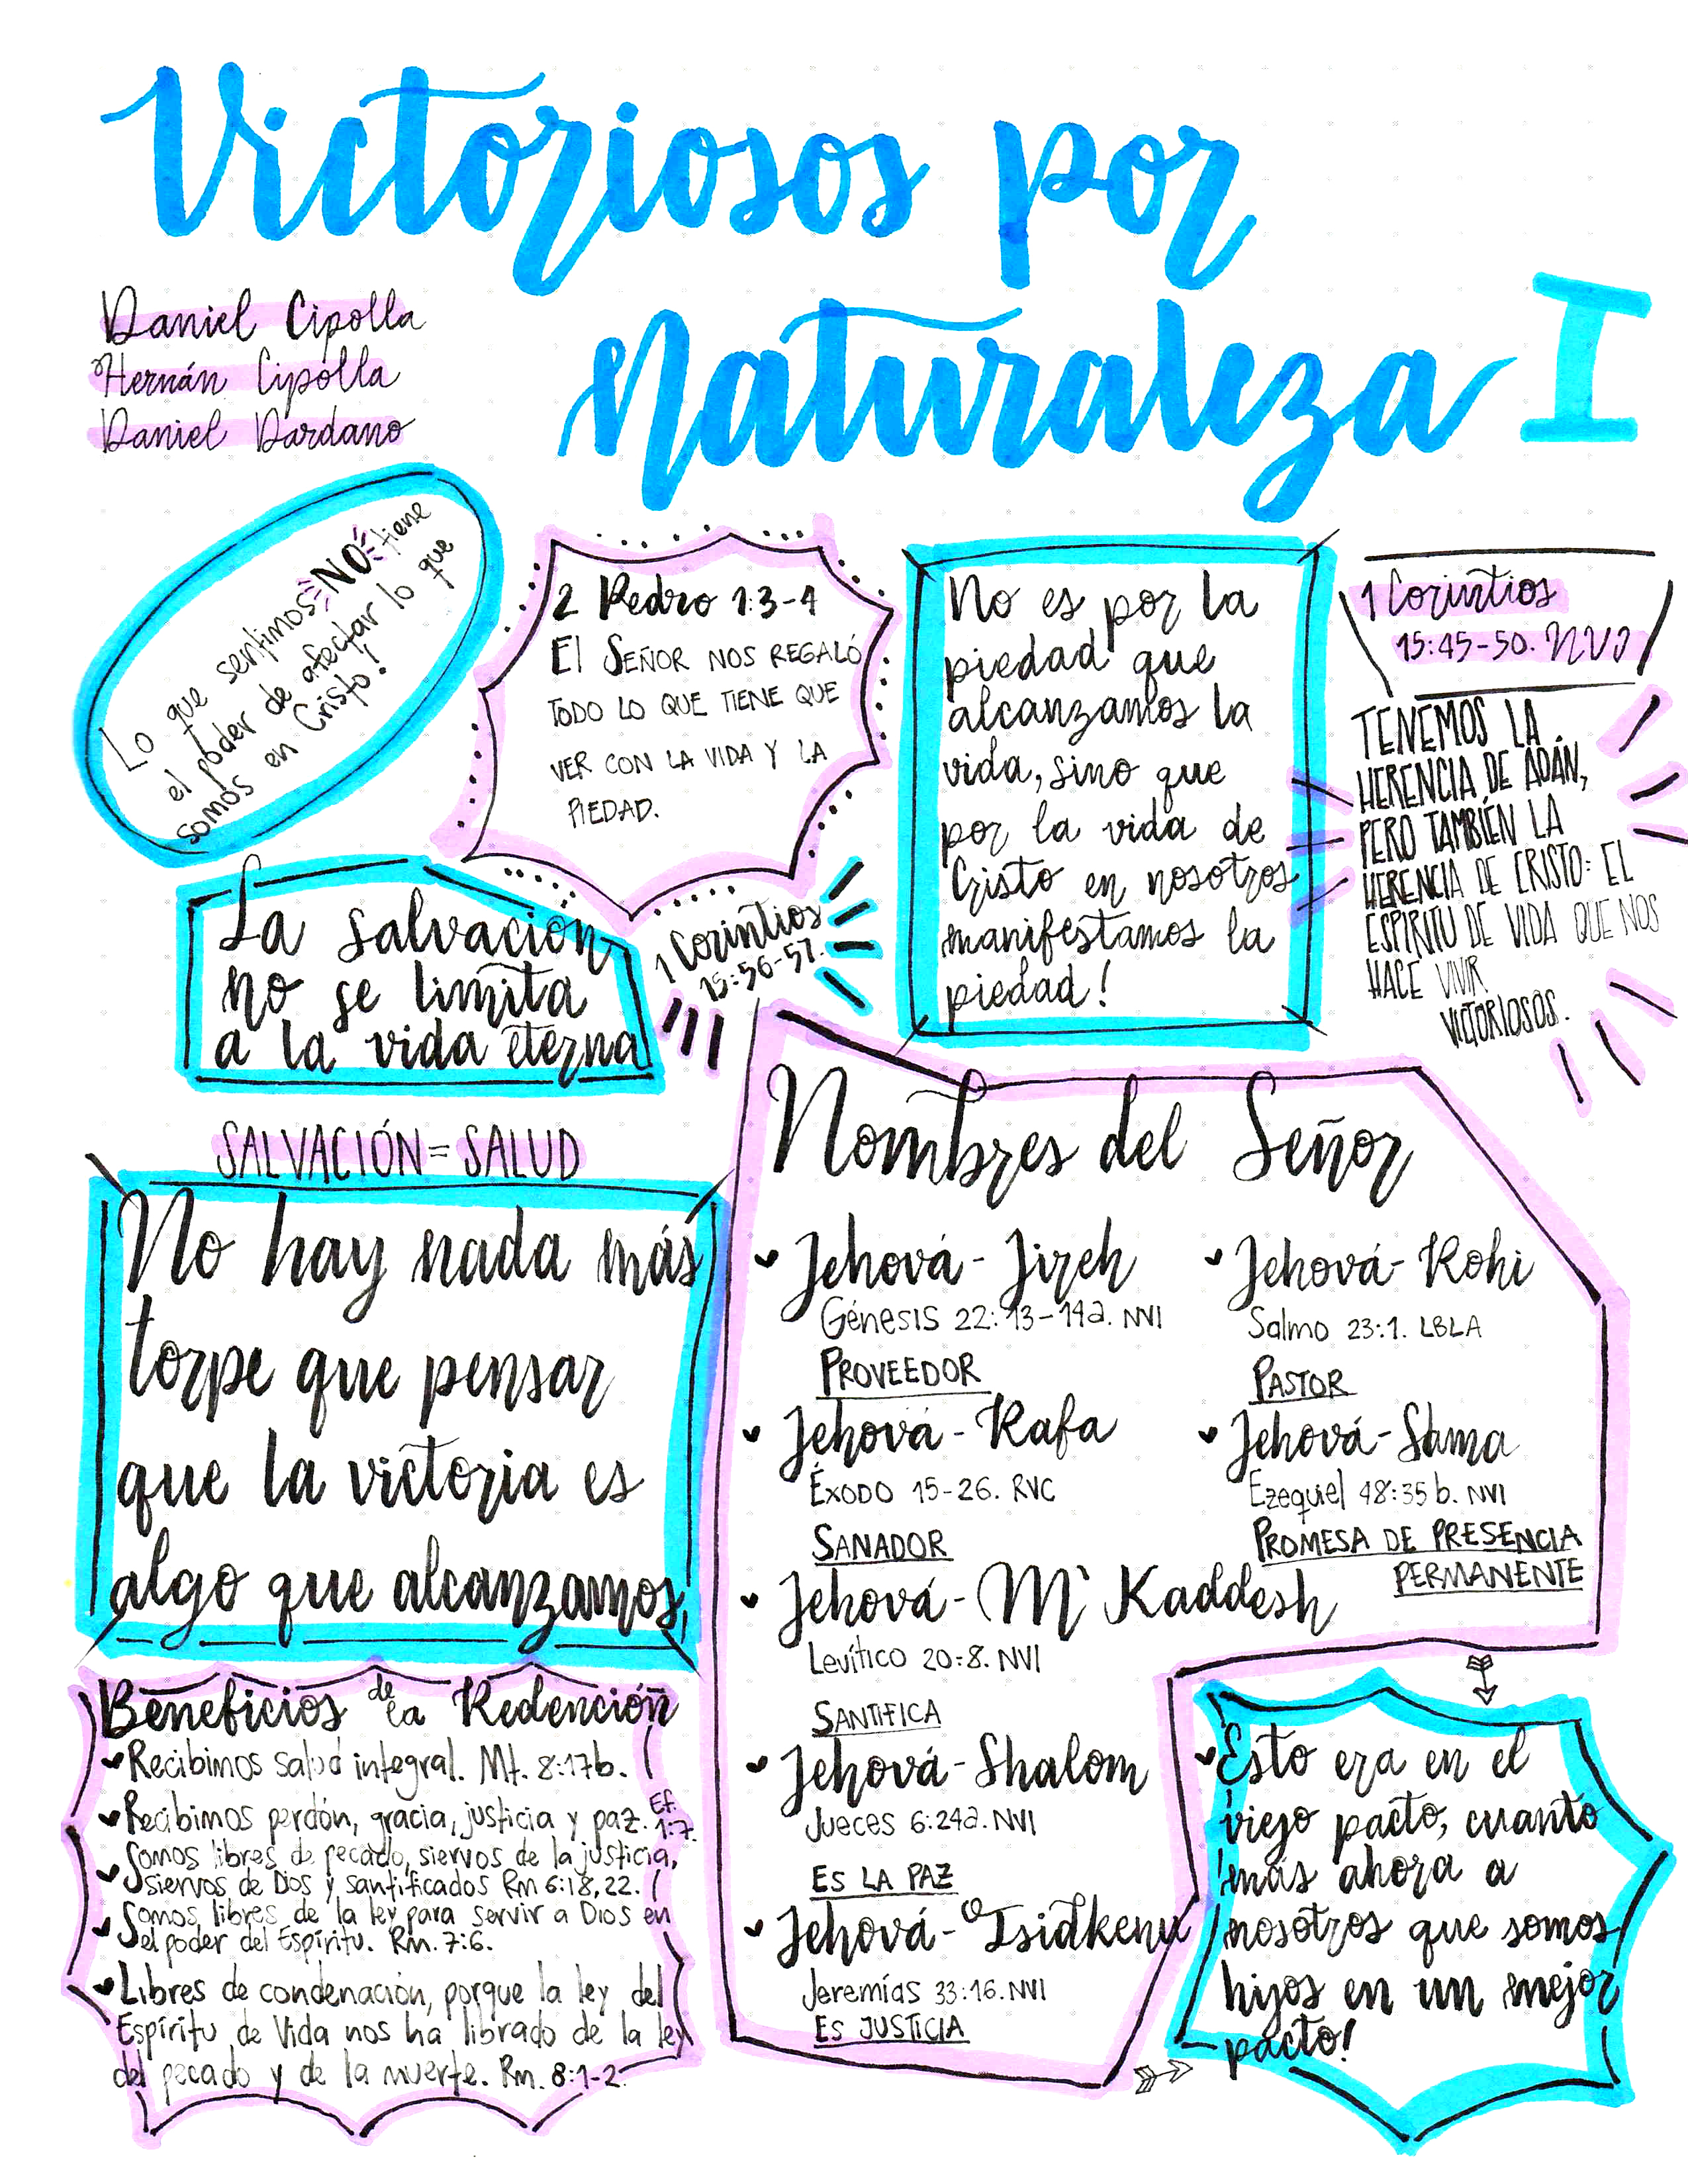 Victoriosos por
Naturaleza I
Daniel Cipolla
Hernán Cipolla
Daniel Dardano
Lo que sentimos NO tiene
el poder de afectar lo que
somos en Cristo!
2 Pedro 1:3-4
El SEÑOR NOS REGALÓ
TODO LO QUE TIENE QUE
VER CON LA VIDA Y LA
PIEDAD.
No es por la
piedad que
alcanzamos la
vida, sino que
por la vida de
Cristo en nosotros
manifestamos la
piedad!
1 Corintios
15:45-50. NVI
TENEMOS LA
HERENCIA DE ADÁN,
PERO TAMBIÉN LA
HERENCIA DE CRISTO: EL
ESPIRITU DE VIDA QUE NOS
HACE VIVIR
VICTORIOSOS.
La salvación
no se limita
a la vida eterna
1 Corintios
15:56-57.
SALVACIÓN = SALUD
No hay nada más
torpe que pensar
que la victoria es
algo que alcanzamos,
Nombres del Señor
Jehová - Jireh
Génesis 22:13-14a. NVI
PROVEEDOR
Jehová - Rafa
Éxodo 15-26. RVC
SANADOR
Jehová - M' Kaddesh
Levítico 20:8. NVI
SANTIFICA
Jehová - Shalom
Jueces 6:24a. NVI
ES LA PAZ
Jehová - Tsidkenu
Jeremías 33:16. NVI
ES JUSTICIA
Jehová - Rohi
Salmo 23:1. LBLA
PASTOR
Jehová - Shma
Ezequiel 48:35b. NVI
PROMESA DE PRESENCIA
PERMANENTE
Beneficios de la Redención
Recibimos salud integral. Mt. 8:17b.
Recibimos perdón, gracia, justicia y paz. Ef. 1:7.
Somos libres de pecado, siervos de la justicia,
siervos de Dios y santificados Rm 6:18,22.
Somos libres de la ley para servir a Dios en
el poder del Espíritu. Rm. 7:6.
Libres de condenación, porque la ley del
Espíritu de Vida nos ha librado de la ley
del pecado y de la muerte. Rm. 8:1-2.
Esto era en el
viejo pacto, cuanto
más ahora a
nosotros que somos
hijos en un mejor
pacto!